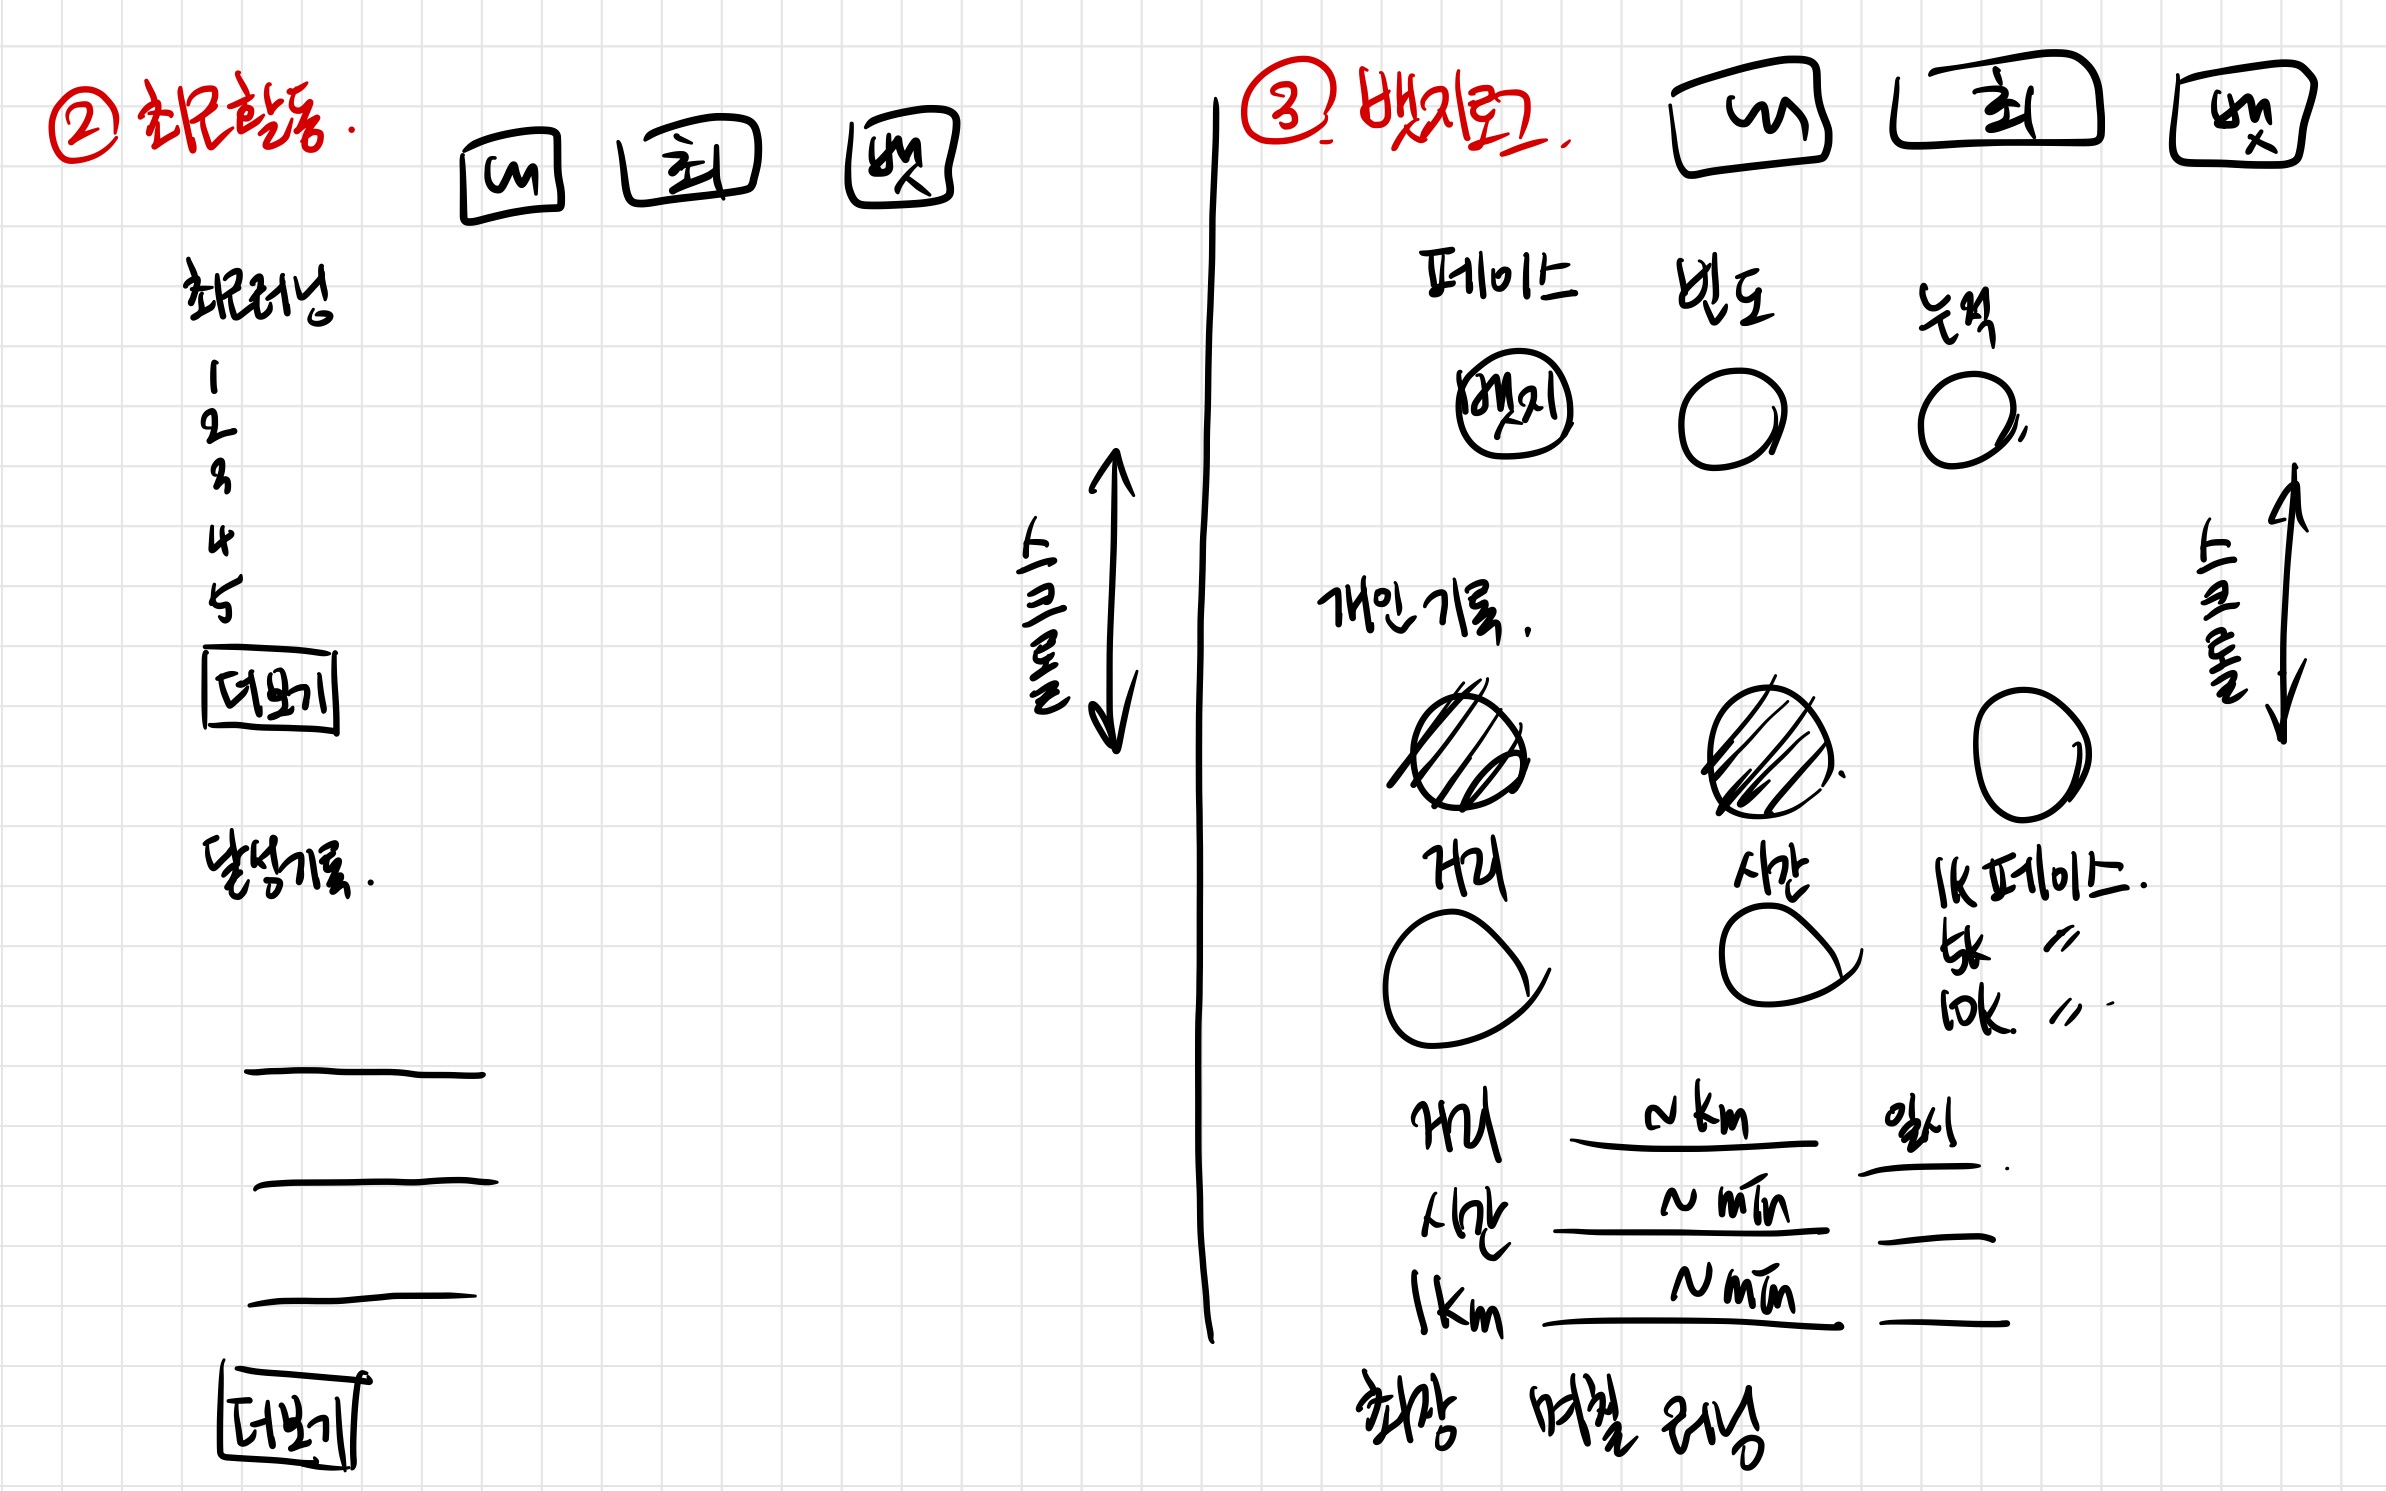 ② 최근활동.
에 최 뺏
최근러닝
1
2
3
4
5
더보기
달성기록.
더보기
스크롤
③ 뱃지로그.
페이스 빈도 누적
뱃지
개인기록.
거리 시간 1K페이스.
5K 〃
10K. 〃
거리 ~ km 일시
시간 ~ min
1km ~ min
스크롤
최장 러닝